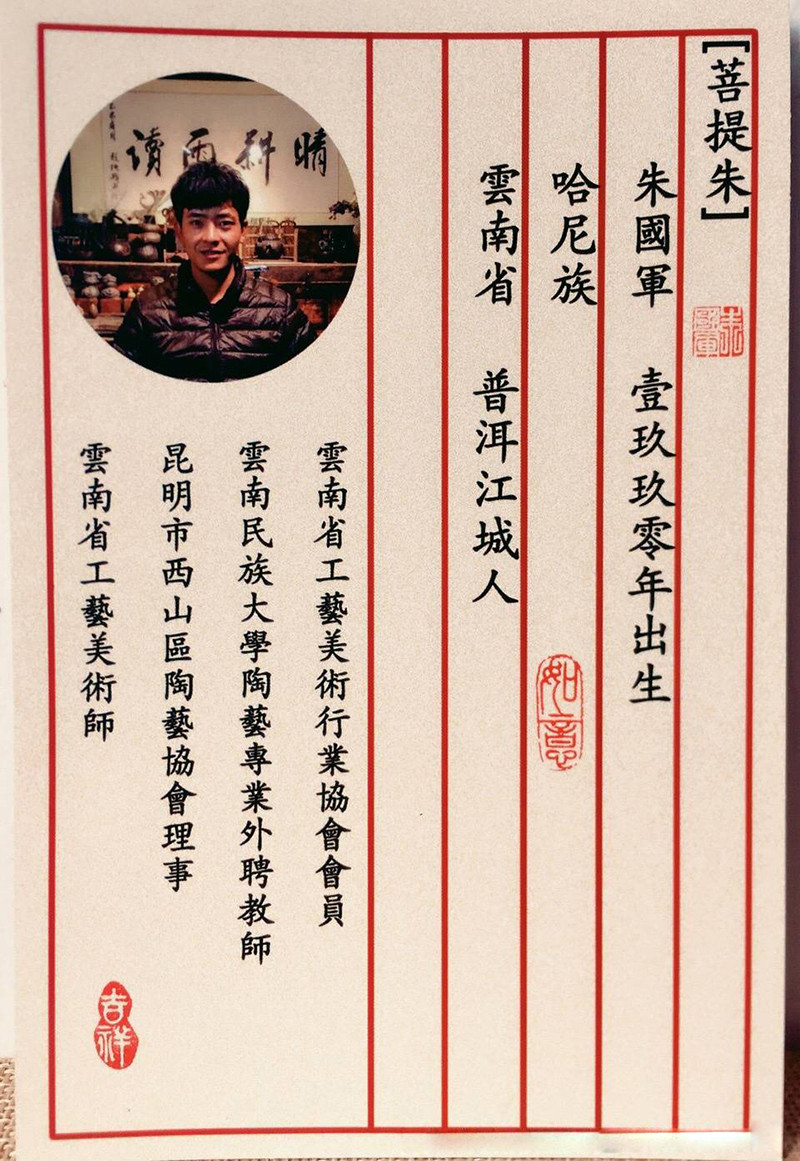 [菩提朱]
朱國軍
朱國軍 壹玖玖零年出生
哈尼族
如意
雲南省 普洱江城人
晴耕雨讀
雲南省工藝美術行業協會會員
雲南民族大學陶藝專業外聘教師
昆明市西山區陶藝協會理事
雲南省工藝美術師
吉祥